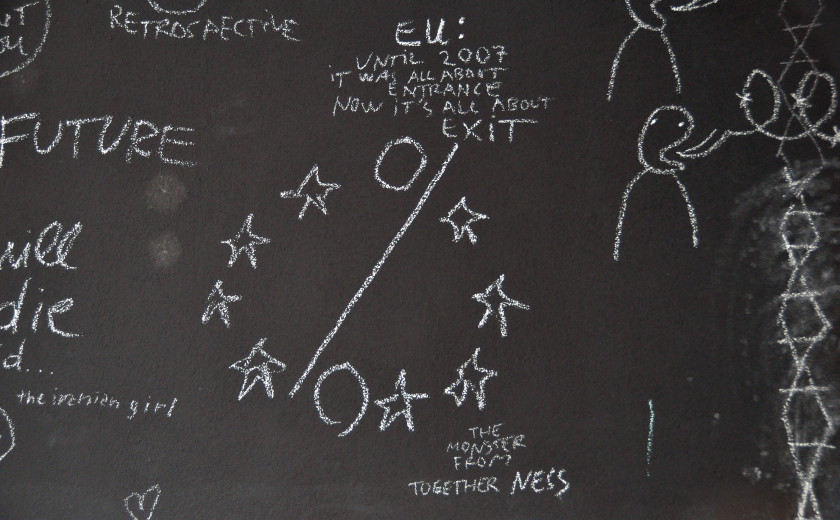 RETROSPECTIVE
FUTURE
will
die
the iranian girl
EU:
UNTIL 2007
IT WAS ALL ABOUT
ENTRANCE
NOW IT'S ALL ABOUT
EXIT
THE
MONSTER
FROM
TOGETHER NESS